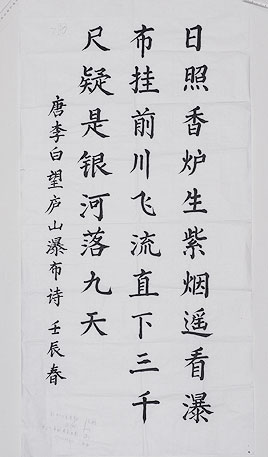 日照香炉生紫烟遥看瀑
布挂前川飞流直下三千
尺疑是银河落九天
唐李白望庐山瀑布诗 壬辰春